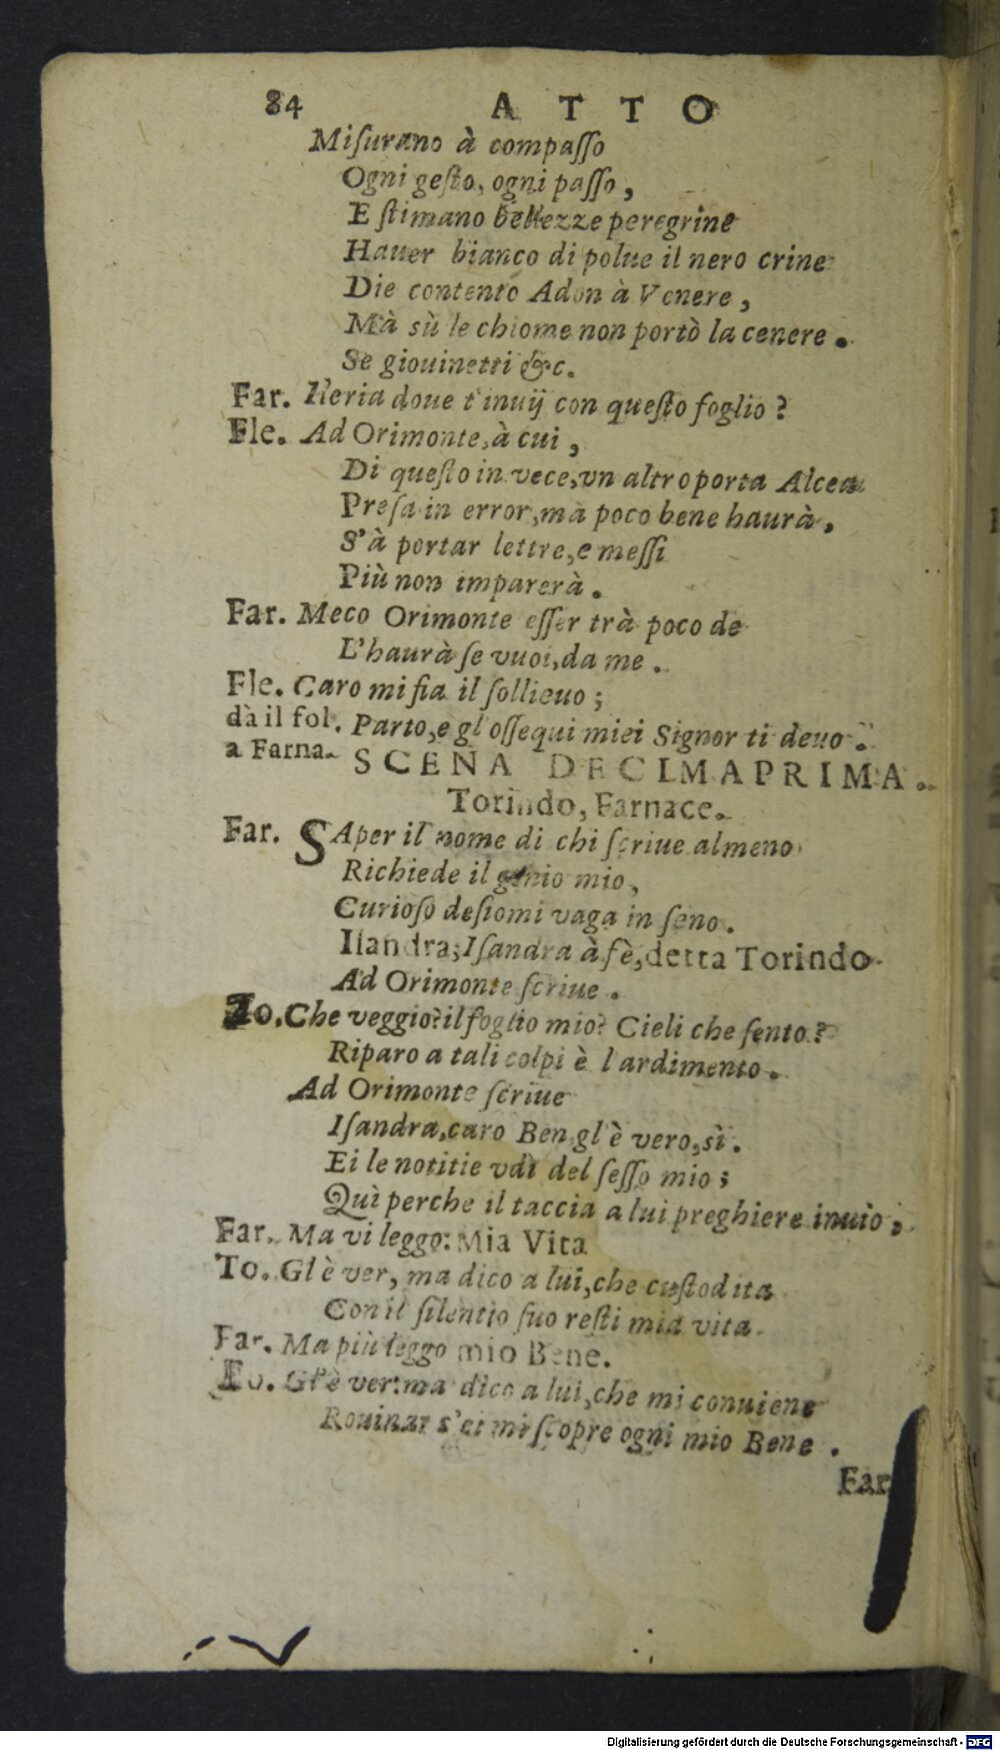 84 ATTO
Miſurano à compaſſo
Ogni geſto, ogni paſſo,
E ſtimano bellezze peregrine
Hauer bianco di polue il nero crine
Die contento Adon à Venere,
Mà sù le chiome non portò la cenere.
Se giouinetti &c.
Far. Ileria doue t'inuij con queſto foglio?
Fle. Ad Orimonte, à cui,
Di queſto in vece, vn altro porta Alcea
Preſa in error, mà poco bene haurà,
S'à portar lettre, e meſſi
Più non imparerà.
Far. Meco Orimonte eſſer trà poco de
L'haurà ſe vuoi, da me.
Fle. Caro mi fia il ſollieuo;
dà il fol. Parto, e gl'oſſequi miei Signor ti deuo.
a Farna.
SCENA DECIMAPRIMA.
Torindo, Farnace.
Far. SAper il nome di chi ſcriue almeno
Richiede il genio mio,
Curioſo deſiomi vaga in ſeno.
Iſandra; Iſandra à fè, detta Torindo
Ad Orimonte ſcriue.
To. Che veggio? il foglio mio? Cieli che ſento?
Riparo a tali colpi è l'ardimento.
Ad Orimonte ſcriue
Iſandra, caro Ben, gl'è vero, sì.
Ei le notitie vdì del ſeſſo mio;
Quì perche il taccia a lui preghiere inuio;
Far. Ma vi leggo: Mia Vita
To. Gl'è ver, ma dico a lui, che cuſtodita
Con il ſilentio ſuo reſti mia vita.
Far. Ma più leggo mio Bene.
To. Gl'è ver: ma dico a lui, che mi conuiene
Rouinar s'ei mi ſcopre ogni mio Bene.
Far.
Digitalisierung gefördert durch die Deutsche Forschungsgemeinschaft - DFG